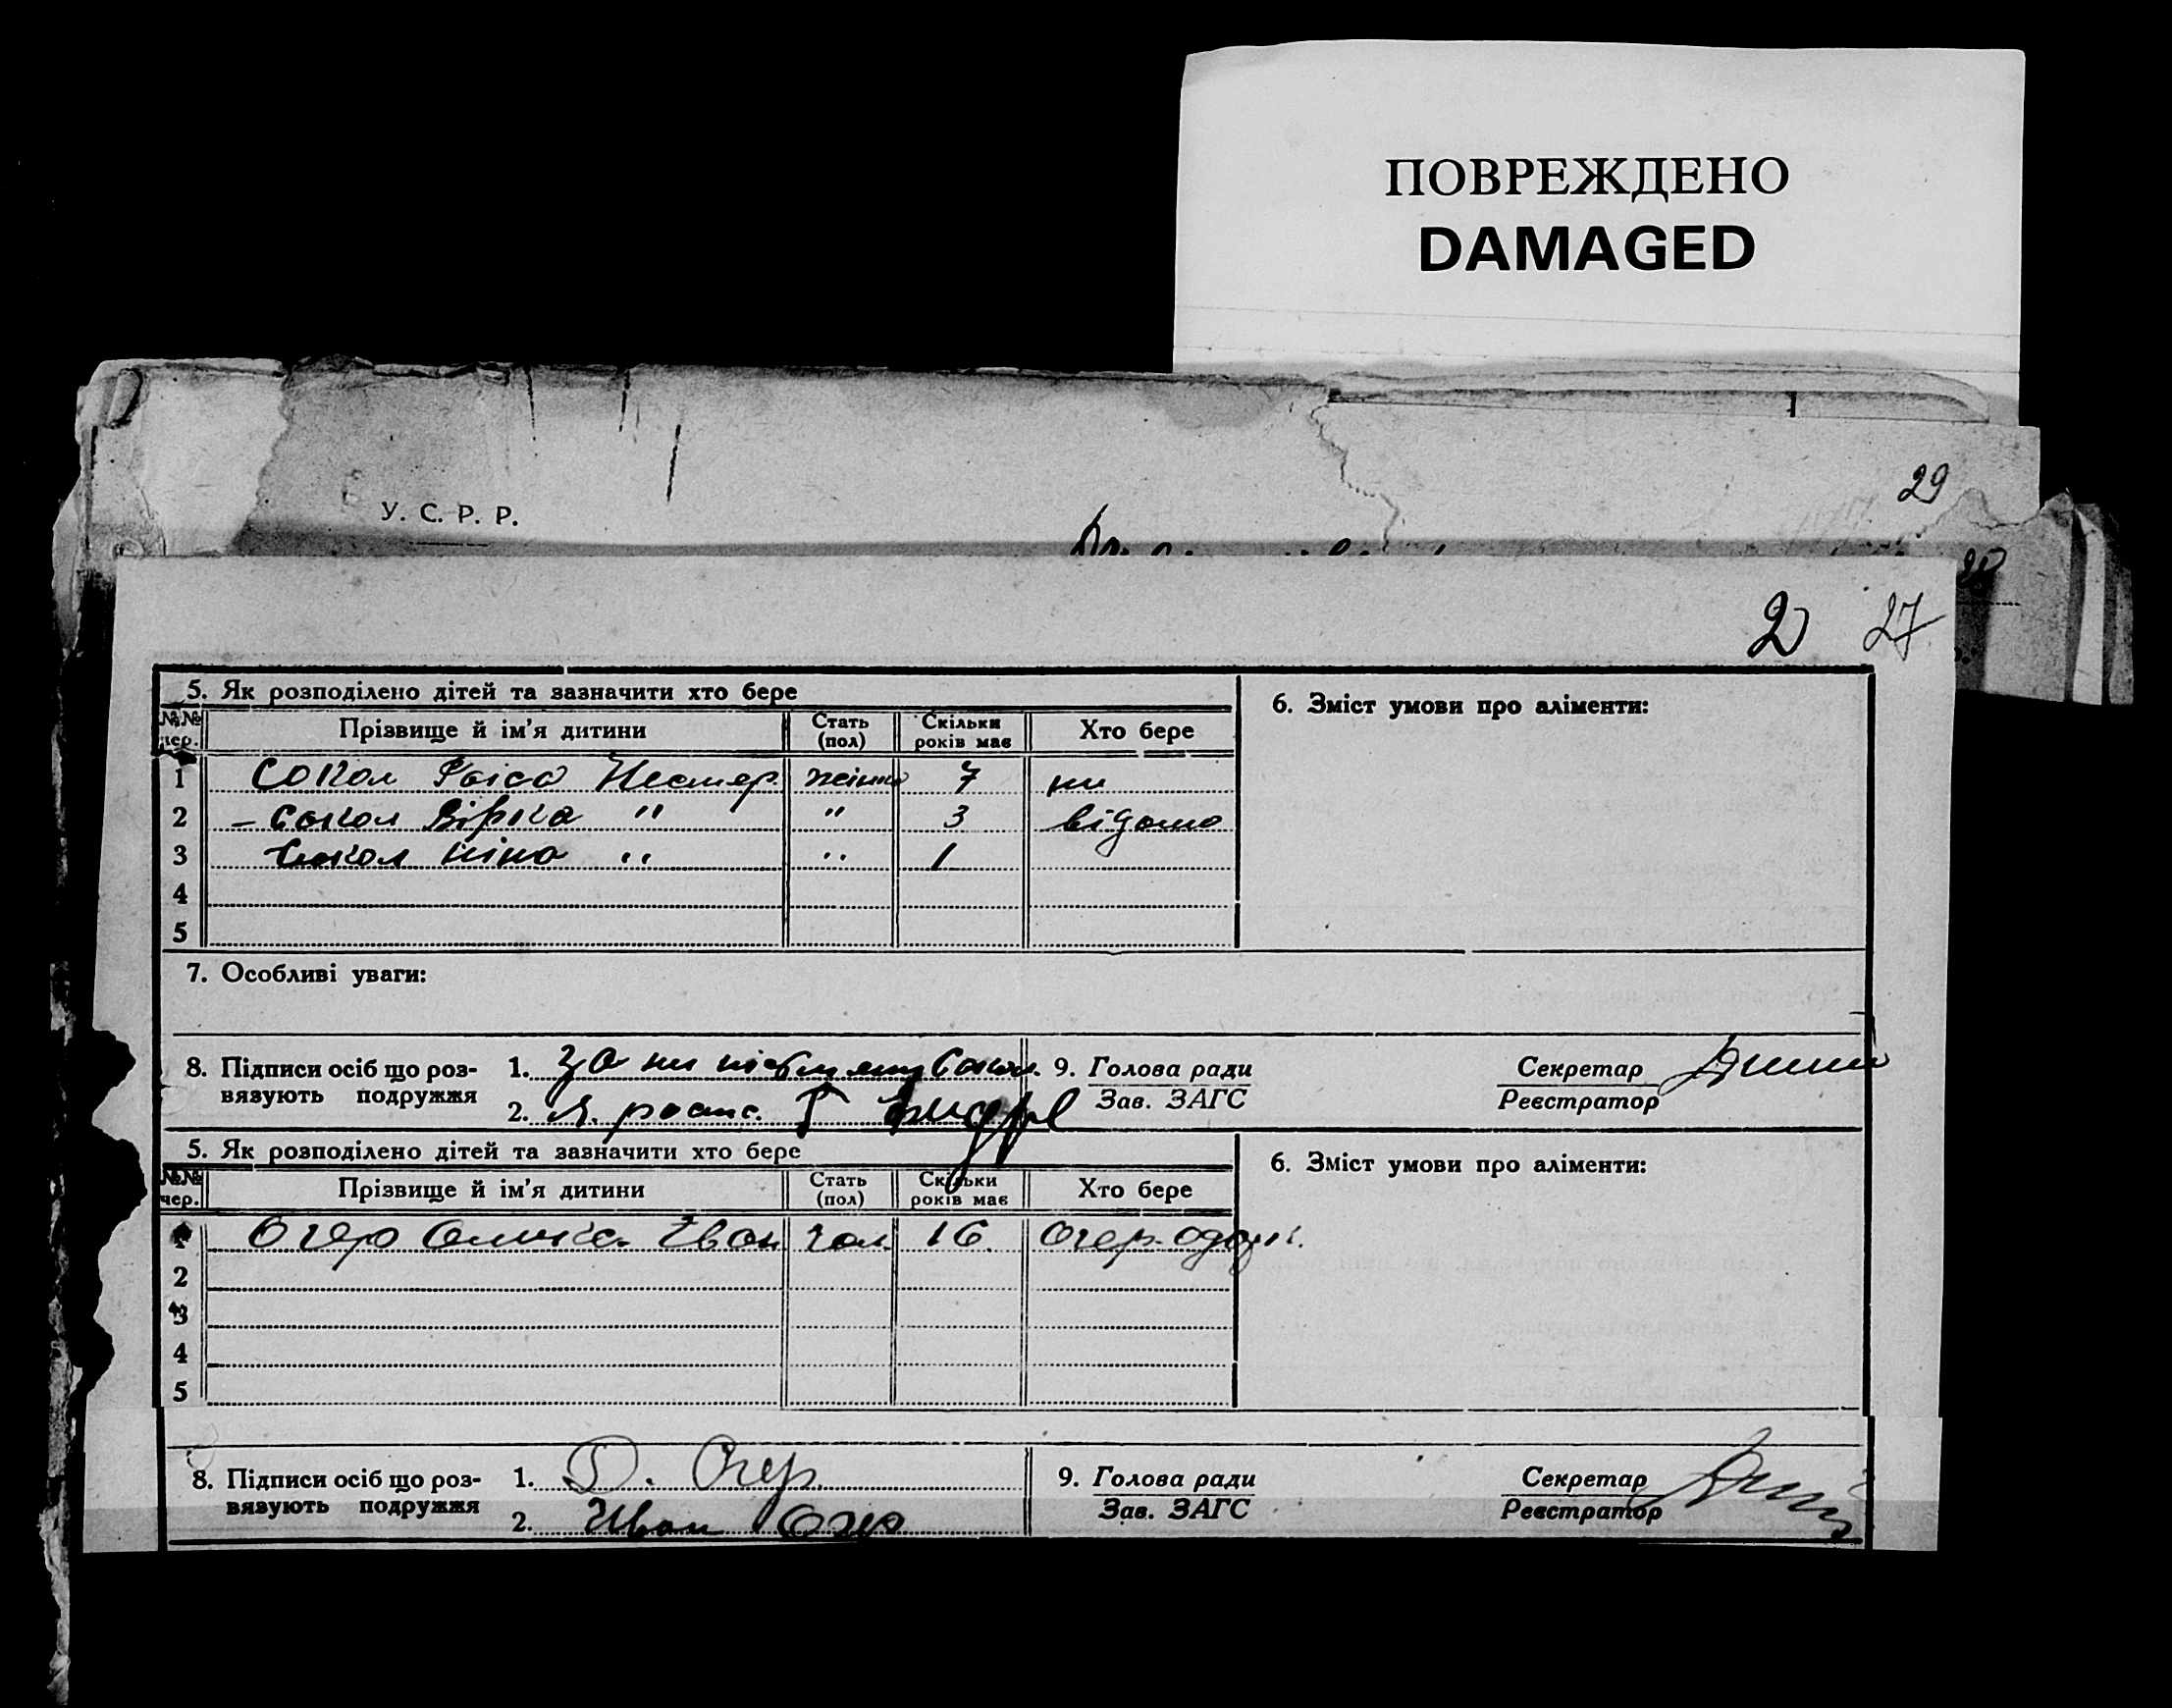 ПОВРЕЖДЕНО
DAMAGED
29
У. С. Р. Р.
30
2 27
5. Як розподілено дітей та зазначити хто бере
6. Зміст умови про аліменти:
№№ чер. Прізвище й ім'я дитини Стать (пол) Скільки років має Хто бере
1 Сокол Раіса Нестер. жіноч 7 не
2 – Сокол Вірка " " 3 відомо
3 Сокол Ніна " " 1
4
5
7. Особливі уваги:
8. Підписи осіб що роз-
вязують подружжя
1. За не письмену Сокол
2. росп.
9. Голова ради
Зав. ЗАГС
Секретар
Реєстратор
5. Як розподілено дітей та зазначити хто бере
6. Зміст умови про аліменти:
№№ чер. Прізвище й ім'я дитини Стать (пол) Скільки років має Хто бере
1 Огер Іван чол. 16 Огер
2
3
4
5
8. Підписи осіб що роз-
вязують подружжя
1. Огер
2. Иван Огер
9. Голова ради
Зав. ЗАГС
Секретар
Реєстратор